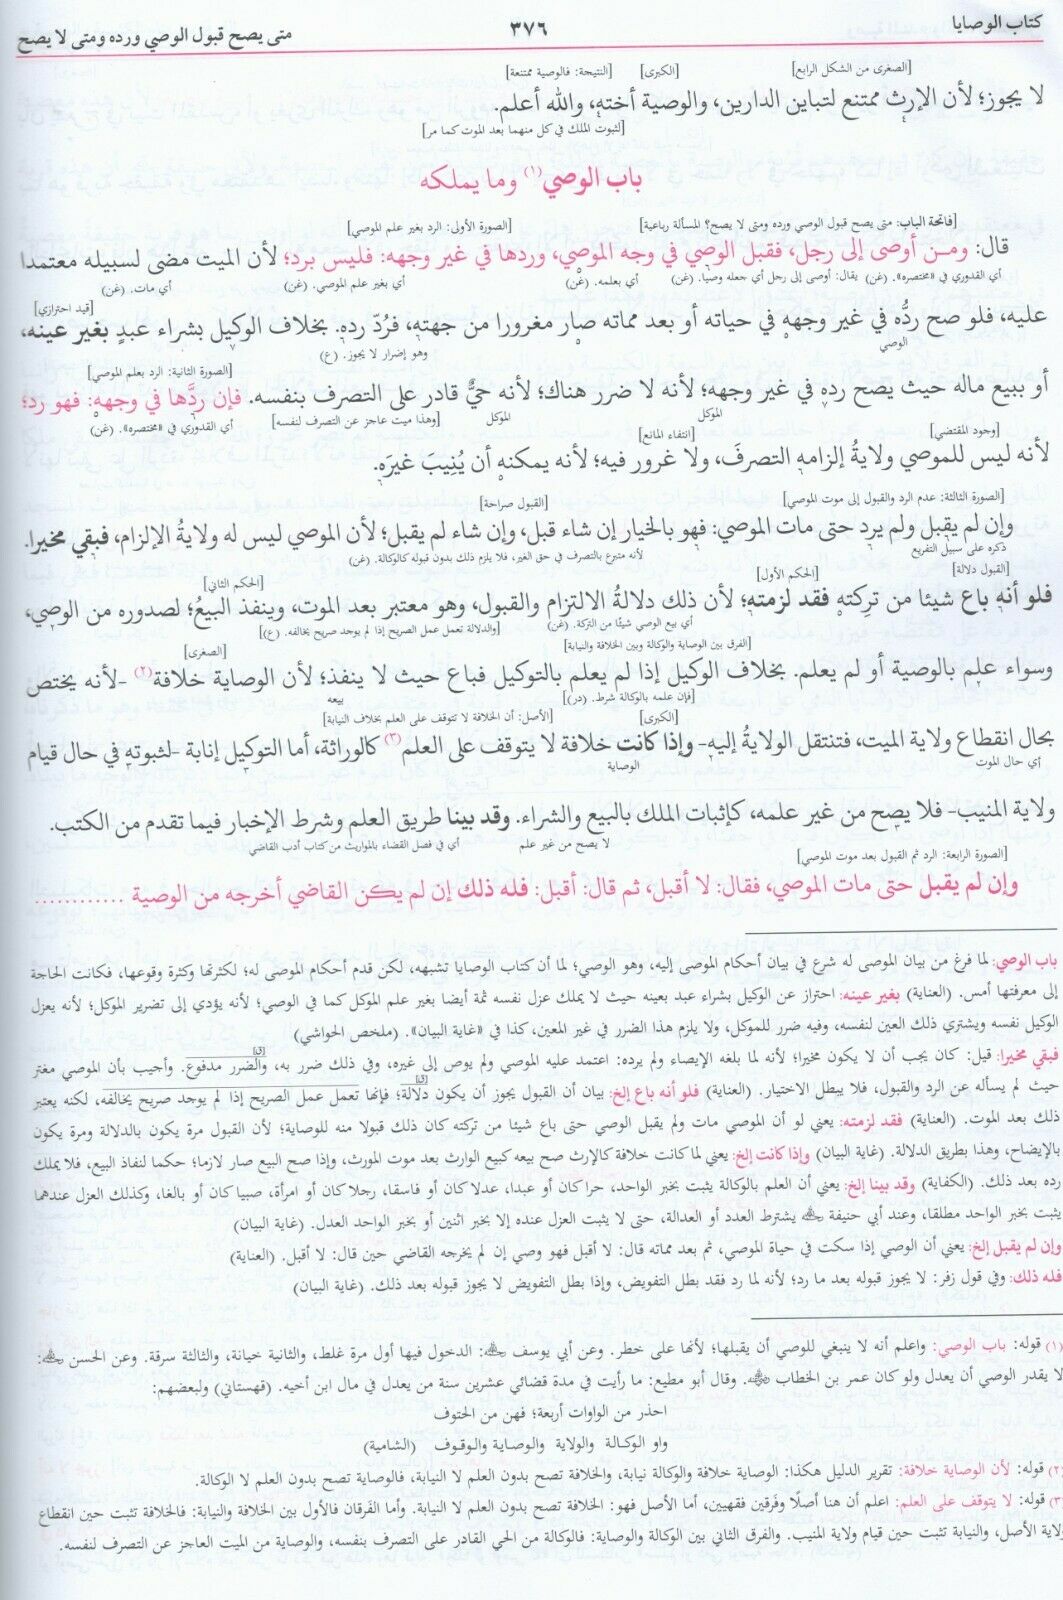 كتاب الوصايا ٣٧٦ متى يصح قبول الوصي ورده ومتى لا يصح
[الصغرى من الشكل الرابع] [الكبرى] [النتيجة: فالوصية ممتنعة]
لا يجوز؛ لأن الإرث ممتنع لتباين الدارين، والوصية أخته، والله أعلم.
[لثبوت الملك في كل منهما بعد الموت كما مر]
باب الوصي(١) وما يملكه
[فاتحة الباب: متى يصح قبول الوصي ورده ومتى لا يصح؟ المسألة رباعية] [الصورة الأولى: الرد بغير علم الموصي]
قال: ومن أوصى إلى رجل، فقبل الوصي في وجه الموصي، وردها في غير وجهه: فليس برد؛ لأن الميت مضى لسبيله معتمدا
أي القدوري في «مختصره». (غن) يقال: أوصى إلى رجل أي جعله وصيًا. (غن) أي بعلمه. (غن) أي بغير علم الموصي. (غن) أي مات. (غن)
[قيد احترازي]
عليه، فلو صح ردُّه في غير وجهه في حياته أو بعد مماته صار مغرورا من جهته، فرُدّ رده. بخلاف الوكيل بشراء عبدٍ بغير عينه،
الوصي وهو إضرار لا يجوز. (ع)
[الصورة الثانية: الرد بعلم الموصي]
أو ببيع ماله حيث يصح رده في غير وجهه؛ لأنه لا ضرر هناك؛ لأنه حيٌّ قادر على التصرف بنفسه. فإن ردَّها في وجهه: فهو رد؛
الموكل الموكل [وهذا ميت عاجز عن التصرف لنفسه] أي القدوري في «مختصره». (غن)
[وجود المقتضي] [انتفاء المانع]
لأنه ليس للموصي ولايةُ إلزامه التصرفَ، ولا غرور فيه؛ لأنه يمكنه أن يُنِيبَ غيرَه.
[الصورة الثالثة: عدم الرد والقبول إلى موت الموصي] [القبول صراحة]
وإن لم يقبل ولم يرد حتى مات الموصي: فهو بالخيار إن شاء قبل، وإن شاء لم يقبل؛ لأن الموصي ليس له ولايةُ الإلزام، فبقي مخيرا.
ذكره على سبيل التفريع لأنه متبرع بالتصرف في حق الغير، فلا يلزم ذلك بدون قبوله كالوكالة. (غن)
[القبول دلالة] [الحكم الأول] [الحكم الثاني]
فلو أنه باع شيئا من تركته فقد لزمته؛ لأن ذلك دلالةُ الالتزام والقبول، وهو معتبر بعد الموت، وينفذ البيعُ؛ لصدوره من الوصي،
أي بيع الوصي شيئًا من التركة. (غن) [والدلالة تعمل عمل الصريح إذا لم يوجد صريح يخالفه. (ع)]
[الفرق بين الوصاية والوكالة وبين الخلافة والنيابة] [الصغرى]
وسواء علم بالوصية أو لم يعلم. بخلاف الوكيل إذا لم يعلم بالتوكيل فباع حيث لا ينفذ؛ لأن الوصاية خلافة(٢) -لأنه يختص
[فإن علمه بالوكالة شرط. (در)] بيعه
[الكبرى] [الأصل: أن الخلافة لا تتوقف على العلم بخلاف النيابة]
بحال انقطاع ولاية الميت، فتنتقل الولايةُ إليه- وإذا كانت خلافة لا يتوقف على العلم(٣) كالوراثة، أما التوكيل إنابة -لثبوته في حال قيام
أي حال الموت الوصاية
ولاية المنيب- فلا يصح من غير علمه، كإثبات الملك بالبيع والشراء. وقد بينا طريق العلم وشرط الإخبار فيما تقدم من الكتب.
لا يصح من غير علم أي في فصل القضاء بالمواريث من كتاب أدب القاضي
[الصورة الرابعة: الرد ثم القبول بعد موت الموصي]
وإن لم يقبل حتى مات الموصي، فقال: لا أقبل، ثم قال: أقبل: فله ذلك إن لم يكن القاضي أخرجه من الوصية ............
باب الوصي: لما فرغ من بيان الموصى له شرع في بيان أحكام الموصى إليه، وهو الوصي؛ لما أن كتاب الوصايا تشبهه، لكن قدم أحكام الموصى له؛ لكثرتها وكثرة وقوعها، فكانت الحاجة
إلى معرفتها أمس. (العناية) بغير عينه: احتراز عن الوكيل بشراء عبد بعينه حيث لا يملك عزل نفسه ثمة أيضا بغير علم الموكل كما في الوصي؛ لأنه يؤدي إلى تضرير الموكل؛ لأنه يعزل
الوكيل نفسه ويشتري ذلك العين لنفسه، وفيه ضرر للموكل، ولا يلزم هذا الضرر في غير المعين، كذا في «غاية البيان». (ملخص الحواشي)
فبقي مخيرا: قيل: كان يجب أن لا يكون مخيرا؛ لأنه لما بلغه الإيصاء ولم يرده: اعتمد عليه الموصي ولم يوص إلى غيره، وفي ذلك ضرر به، والضرر مدفوع. وأجيب بأن الموصي مغتر
حيث لم يسأله عن الرد والقبول، فلا يبطل الاختيار. (العناية) فلو أنه باع إلخ: بيان أن القبول يجوز أن يكون دلالة؛ فإنها تعمل عمل الصريح إذا لم يوجد صريح يخالفه، لكنه يعتبر
ذلك بعد الموت. (العناية) فقد لزمته: يعني لو أن الموصي مات ولم يقبل الوصي حتى باع شيئا من تركته كان ذلك قبولا منه للوصاية؛ لأن القبول مرة يكون بالدلالة ومرة يكون
بالإيضاح، وهذا بطريق الدلالة. (غاية البيان) وإذا كانت إلخ: يعني لما كانت خلافة كالإرث صح بيعه كبيع الوارث بعد موت المورث، وإذا صح البيع صار لازما؛ حكما لنفاذ البيع، فلا يملك
رده بعد ذلك. (الكفاية) وقد بينا إلخ: يعني أن العلم بالوكالة يثبت بخبر الواحد، حرا كان أو عبدا، عدلا كان أو فاسقا، رجلا كان أو امرأة، صبيا كان أو بالغا، وكذلك العزل عندهما
يثبت بخبر الواحد مطلقا، وعند أبي حنيفة يشترط العدد أو العدالة، حتى لا يثبت العزل عنده إلا بخبر اثنين أو بخبر الواحد العدل. (غاية البيان)
وإن لم يقبل إلخ: يعني أن الوصي إذا سكت في حياة الموصي، ثم بعد مماته قال: لا أقبل فهو وصي إن لم يخرجه القاضي حين قال: لا أقبل. (العناية)
فله ذلك: وفي قول زفر: لا يجوز قبوله بعد ما رد؛ لأنه لما رد فقد بطل التفويض، وإذا بطل التفويض لا يجوز قبوله بعد ذلك. (غاية البيان)
(١) قوله: باب الوصي: واعلم أنه لا ينبغي للوصي أن يقبلها؛ لأنها على خطر. وعن أبي يوسف: الدخول فيها أول مرة غلط، والثانية خيانة، والثالثة سرقة. وعن الحسن:
لا يقدر الوصي أن يعدل ولو كان عمر بن الخطاب. وقال أبو مطيع: ما رأيت في مدة قضائي عشرين سنة من يعدل في مال ابن أخيه. (قهستاني) ولبعضهم:
احذر من الواوات أربعة؛ فهن من الحتوف
واو الوكالة والولاية والوصاية والوقوف (الشامية)
(٢) قوله: لأن الوصاية خلافة: تقرير الدليل هكذا: الوصاية خلافة والوكالة نيابة، والخلافة تصح بدون العلم لا النيابة، فالوصاية تصح بدون العلم لا الوكالة.
(٣) قوله: لا يتوقف على العلم: اعلم أن هنا أصلًا وفَرقين فقهيين، أما الأصل فهو: الخلافة تصح بدون العلم لا النيابة. وأما الفَرقان فالأول بين الخلافة والنيابة: فالخلافة تثبت حين انقطاع
ولاية الأصل، والنيابة تثبت حين قيام ولاية المنيب. والفرق الثاني بين الوكالة والوصاية: فالوكالة من الحي القادر على التصرف بنفسه، والوصاية من الميت العاجز عن التصرف لنفسه.